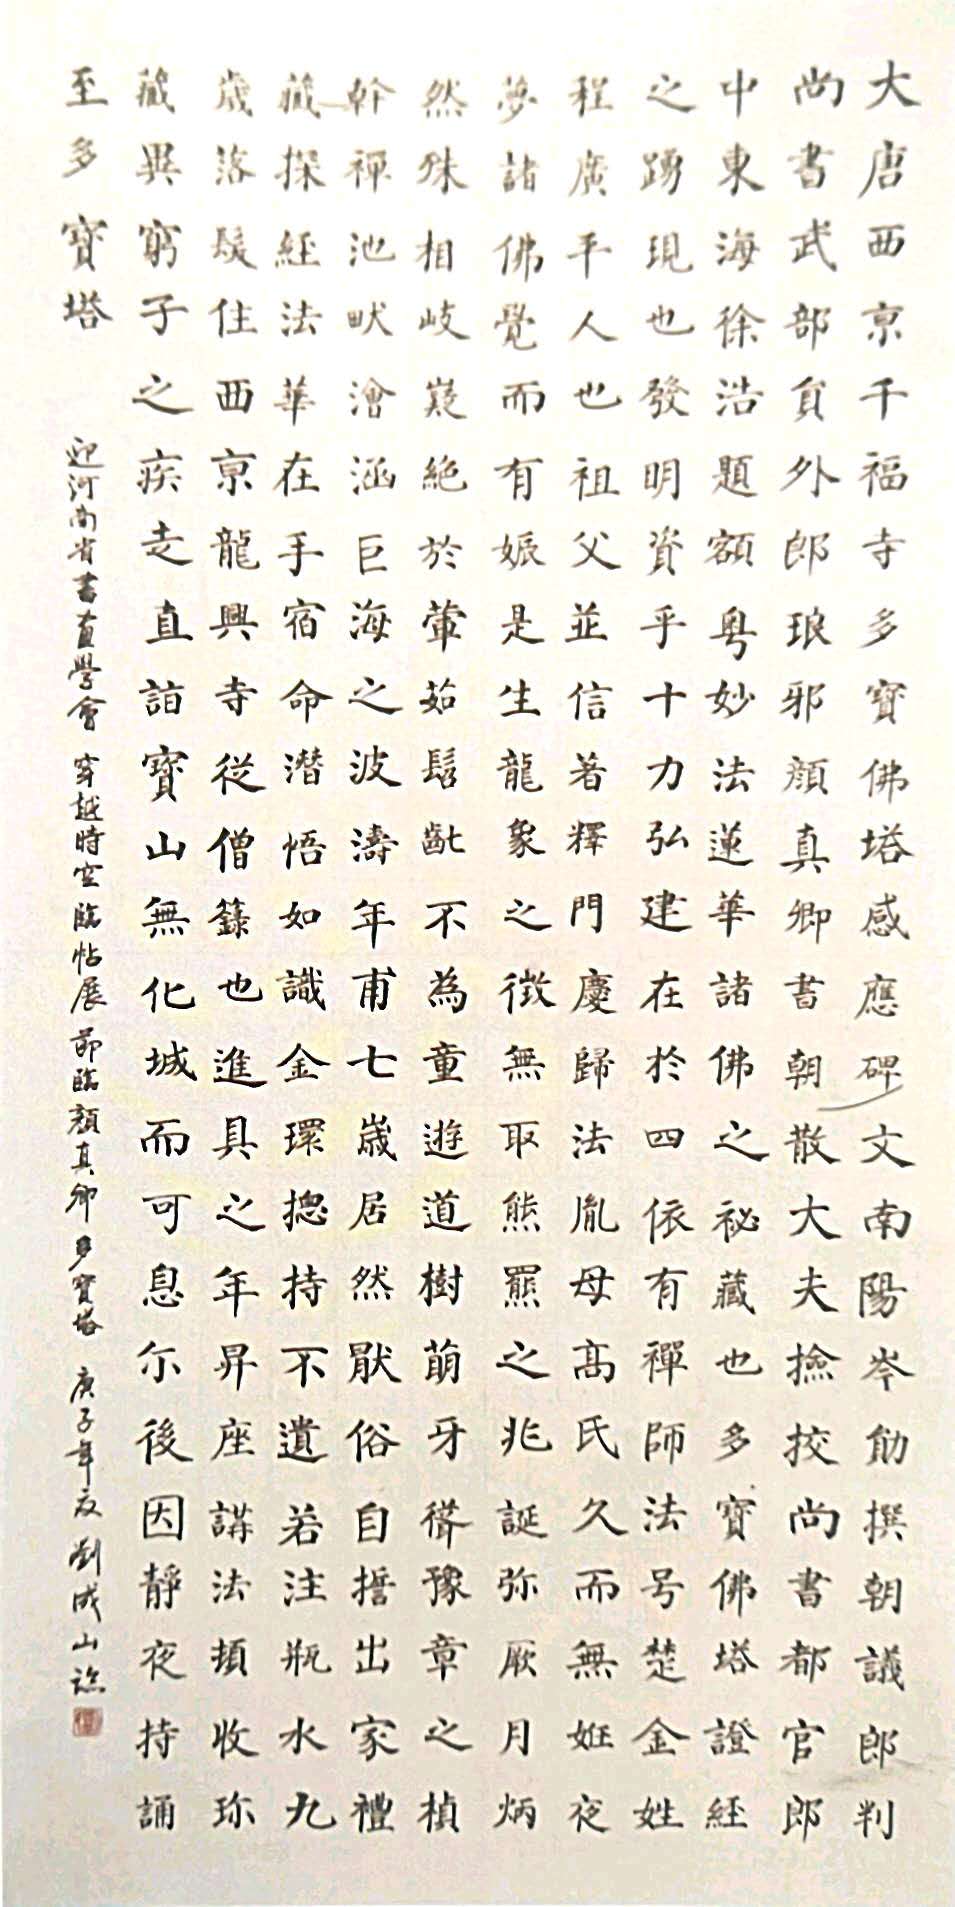 大唐西京千福寺多寶佛塔感應碑文南陽岑勛撰朝議郎判
尚書武部員外郎琅邪顏真卿書朝散大夫撿挍尚書都官郎
中東海徐浩題額粵妙法蓮華諸佛之祕藏也多寶佛塔證經
之踴現也發明資乎十力弘建在於四依有禪師法号楚金姓
程廣平人也祖父並信著釋門慶歸法胤母高氏久而無姙夜
夢諸佛覺而有娠是生龍象之徵無取熊羆之兆誕弥厥月炳
然殊相岐嶷絕於葷茹髫齔不為童遊道樹萌牙聳豫章之楨
幹禪池畎澮涵巨海之波濤年甫七歲居然厭俗自誓出家禮
藏探經法華在手宿命潛悟如識金環揔持不遺若注瓶水九
歲落髮住西京龍興寺從僧籙也進具之年昇座講法頓收珎
藏異窮子之疾走直詣寶山無化城而可息尒後因靜夜持誦
至多寶塔
迎河南省書畫學會 穿越時空臨帖展 節臨顏真卿多寶塔 庚子年夏 劉成山